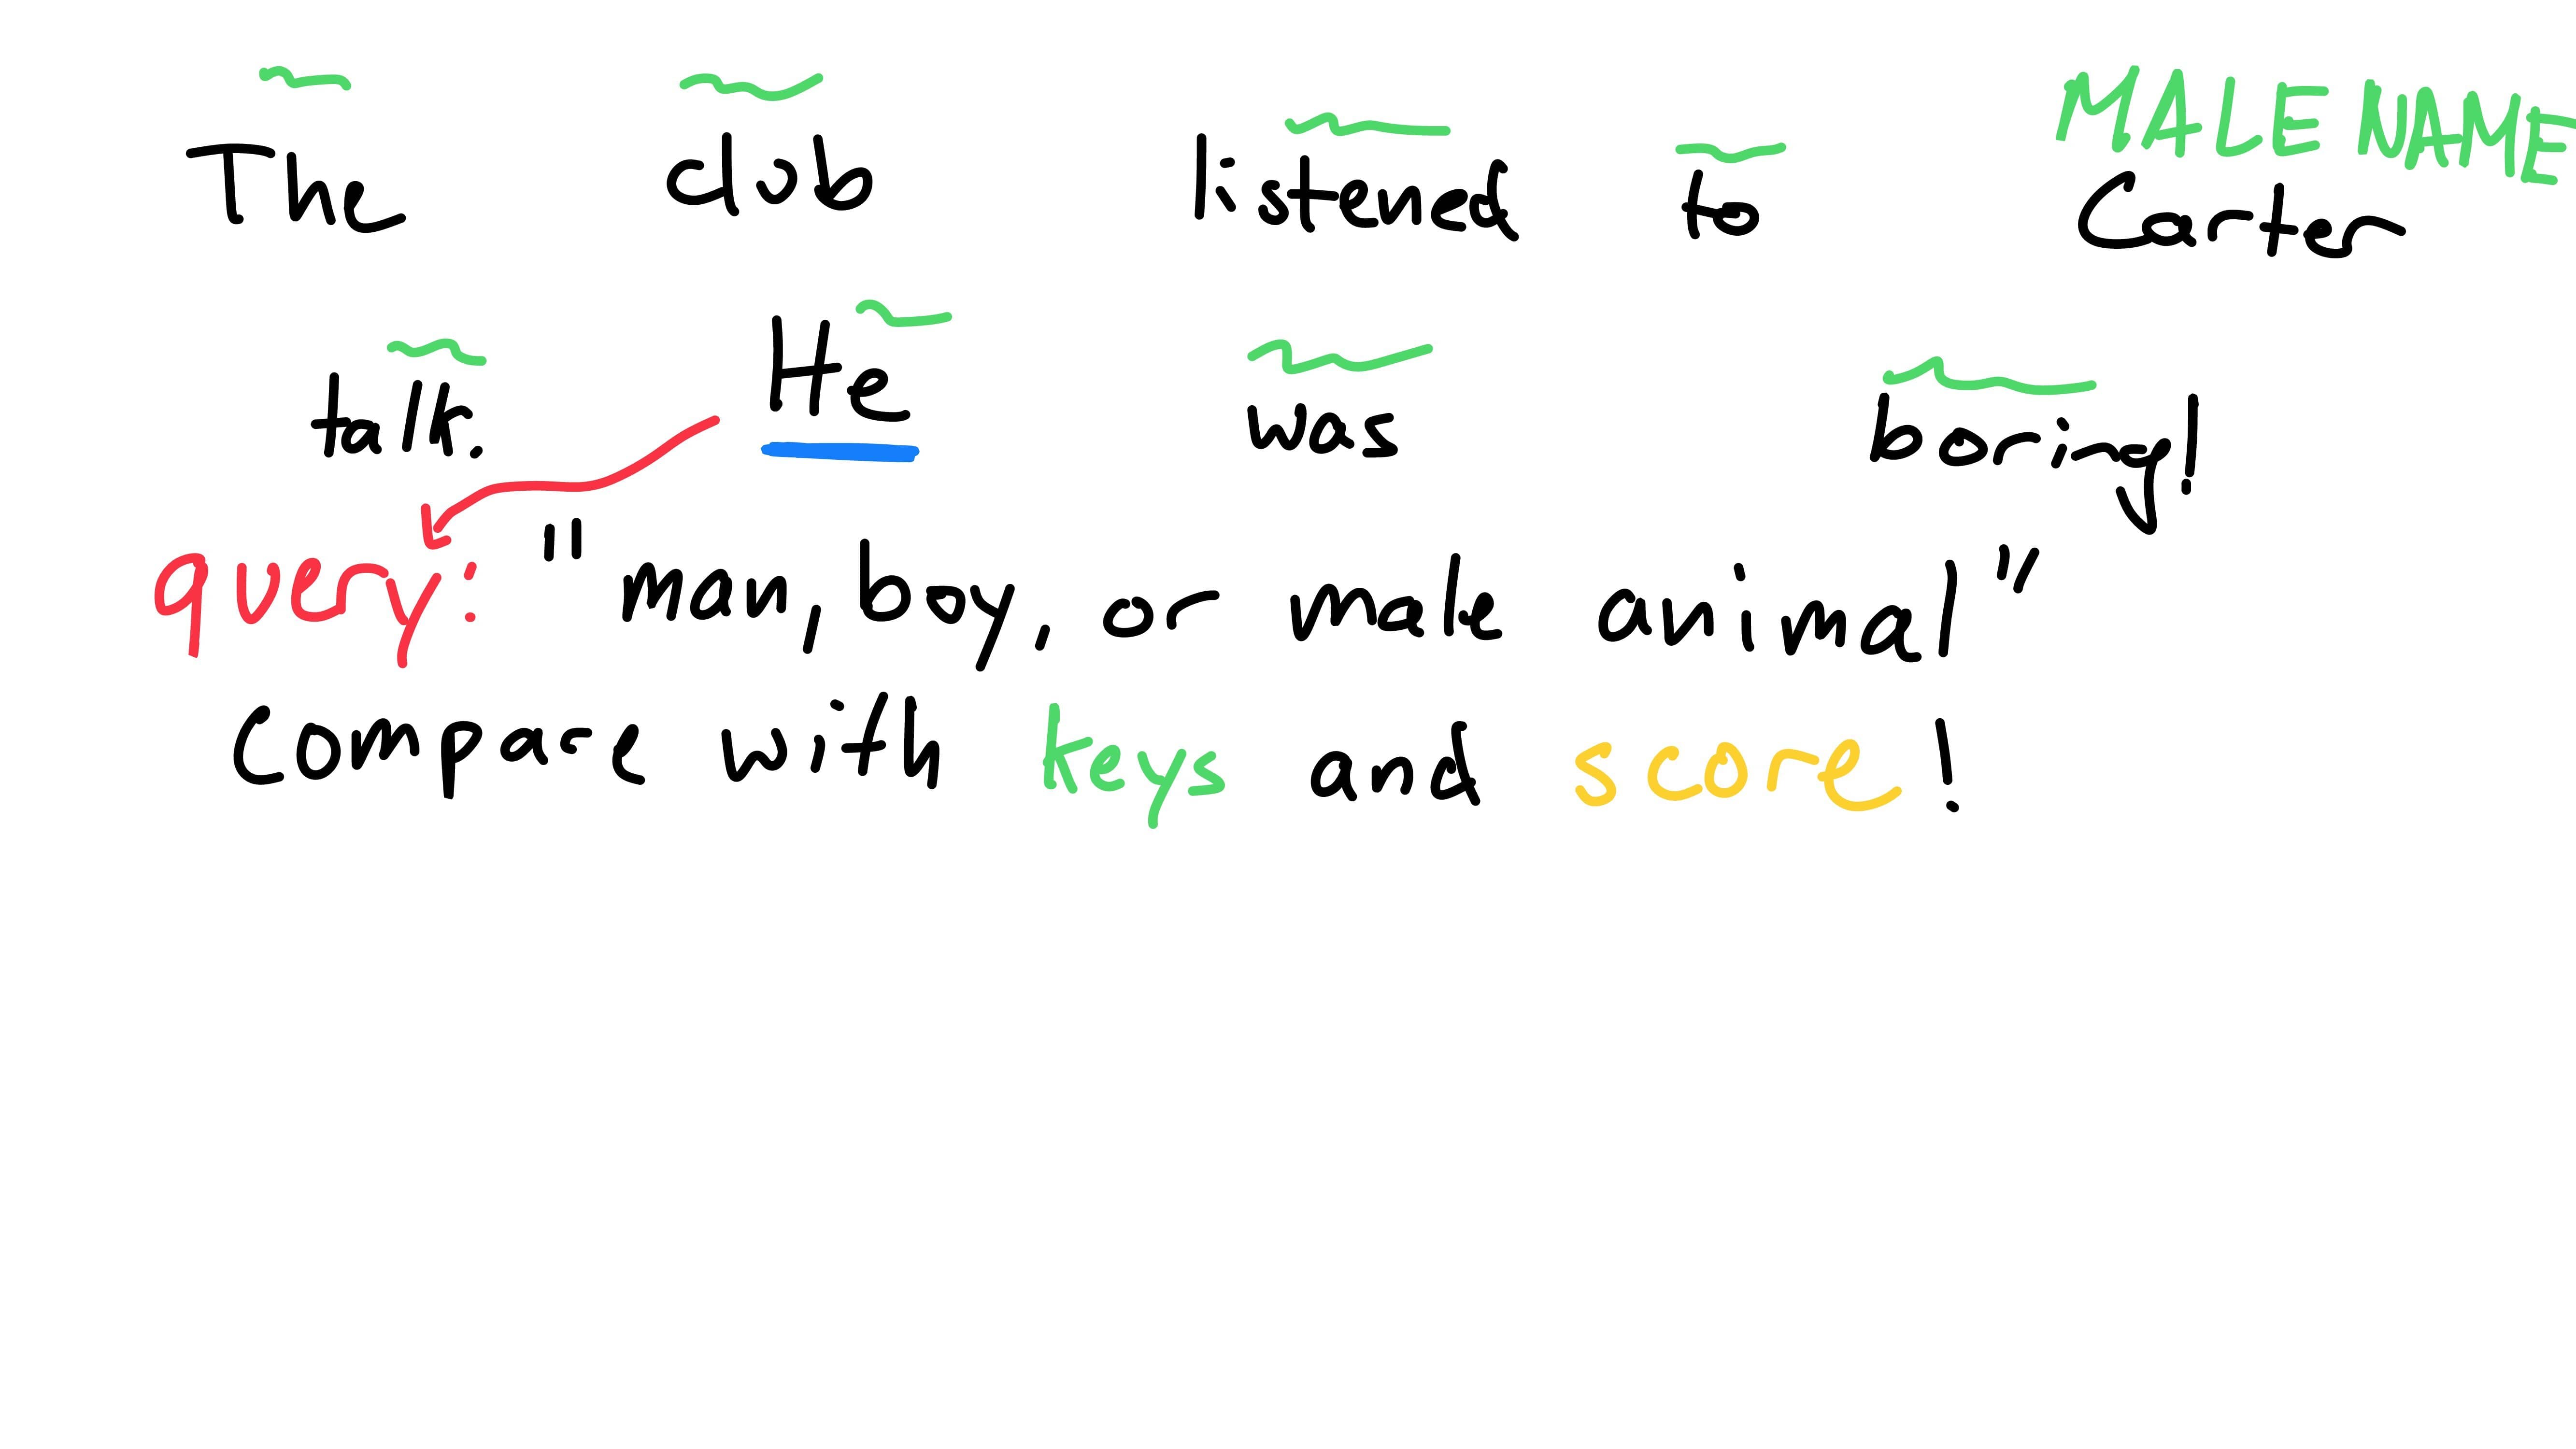 MALE NAME
The club listened to Carter
talk. He was boring!
query: "man, boy, or male animal"
Compare with keys and score!